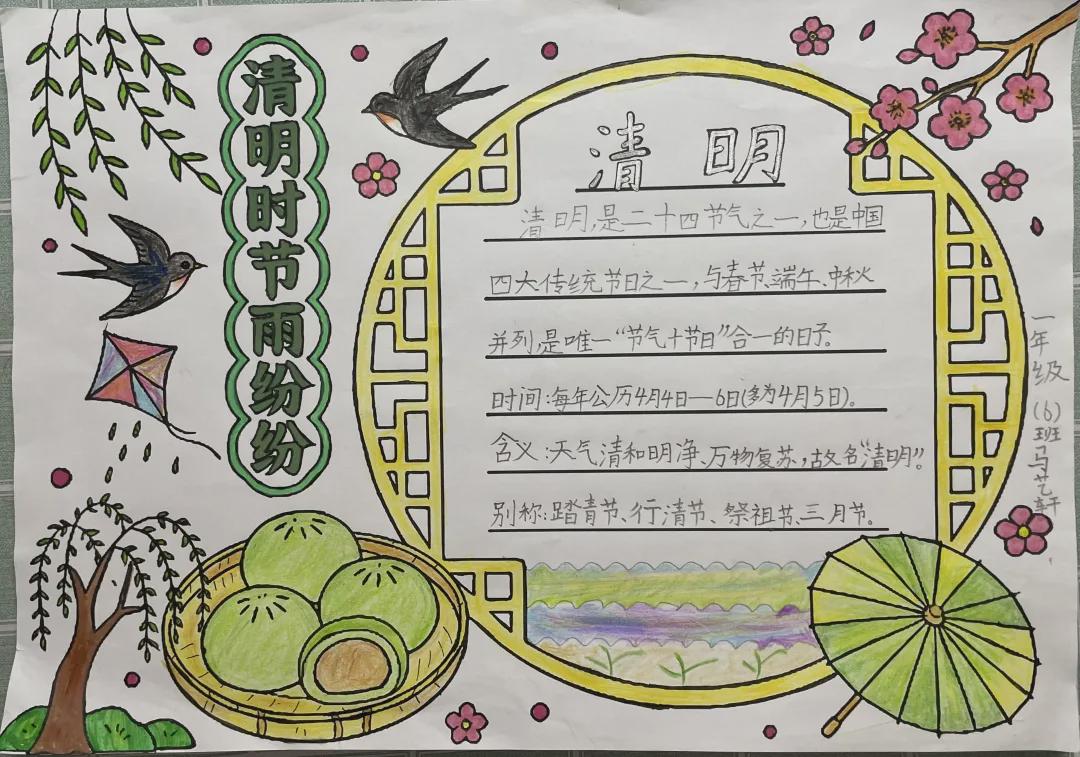 清明时节雨纷纷
清明
清明,是二十四节气之一,也是中国
四大传统节日之一,与春节、端午、中秋
并列,是唯一“节气+节日”合一的日子。
时间:每年公历4月4日—6日(多为4月5日)。
含义:天气清和明净、万物复苏,故名“清明”。
别称:踏青节、行清节、祭祖节、三月节。
一年级(6)班马艺轩